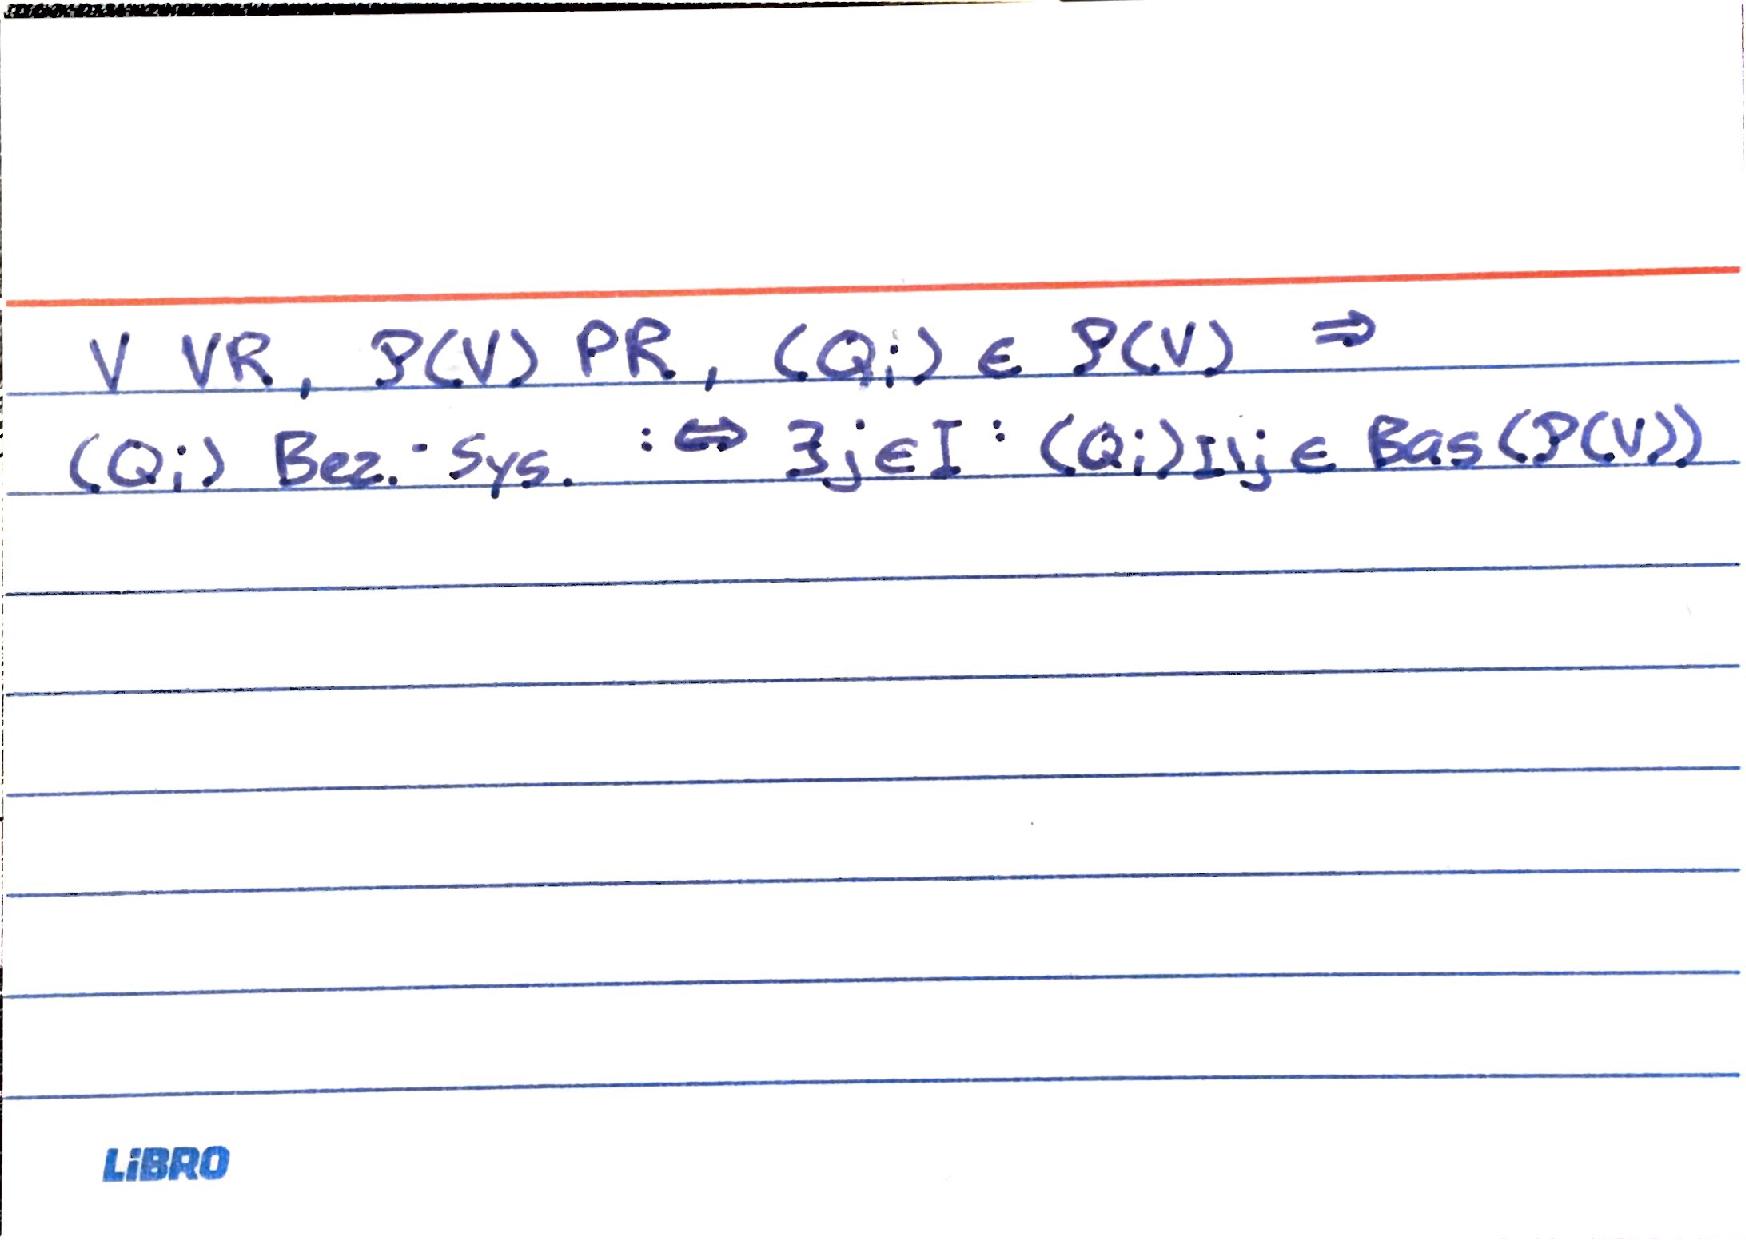 V VR, P(V) PR, (Qᵢ) ∈ P(V) ⇒
(Qᵢ) Bez.-Sys. :⇔ ∃j∈I : (Qᵢ)I\j ∈ Bas(P(V))
LiBRO